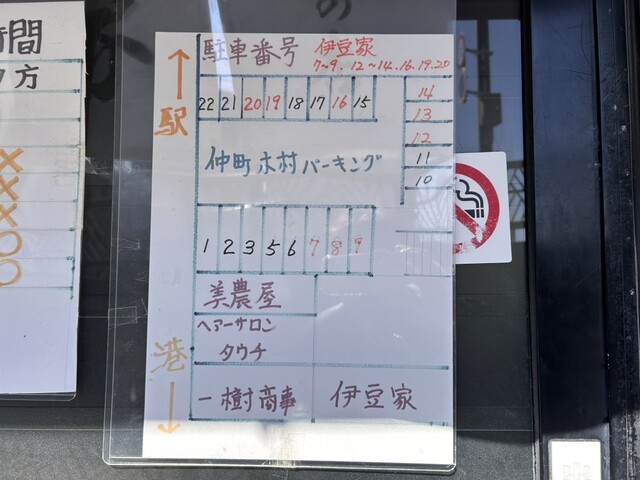 時間
夕方
×
×
×
○
○
↑
駅
駐車番号 伊豆家
7~9. 12~14.16.19.20
22 21 20 19 18 17 16 15
14
13
12
11
10
仲町木村パーキング
1 2 3 5 6 7 8 9
美農屋
ヘアーサロン
タウチ
港
↓
一樹商事
伊豆家